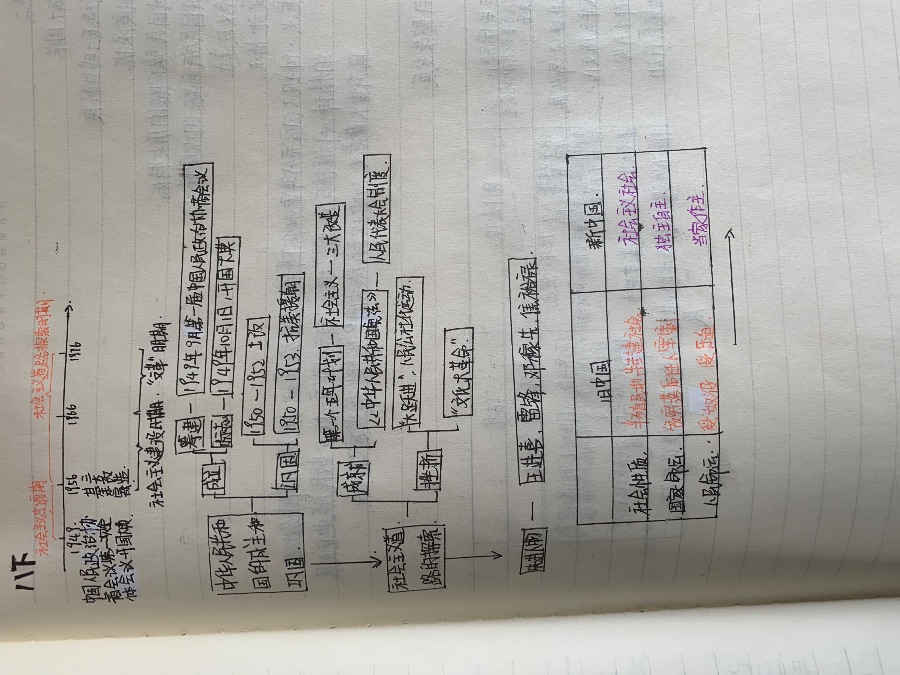 八下
社会主义过渡时期
社会主义道路探索时期
1949
1956
1966
1976
中国人民政治协
商会议第一次全
体会议、开国大典
三大
改造
社会主义建设时期
"文革"时期
中华人民共和
国的成立和
巩固
成立
筹建
1949年9月第一届中国人民政治协商会议
标志
1949年10月1日,开国大典
巩固
1950-1952 土改
1950-1953 抗美援朝
社会主义道
路的探索
成就
第一个五年计划
社会主义
三大改造
《中华人民共和国宪法》
人民代表大会制度
挫折
"大跃进",人民公社化运动
"文化大革命"
王进喜、雷锋、邓稼先、焦裕禄
旧中国
新中国
社会性质
半殖民地半封建社会
社会主义社会
国家命运
独立自主
人民命运
受奴役 被压迫
当家作主